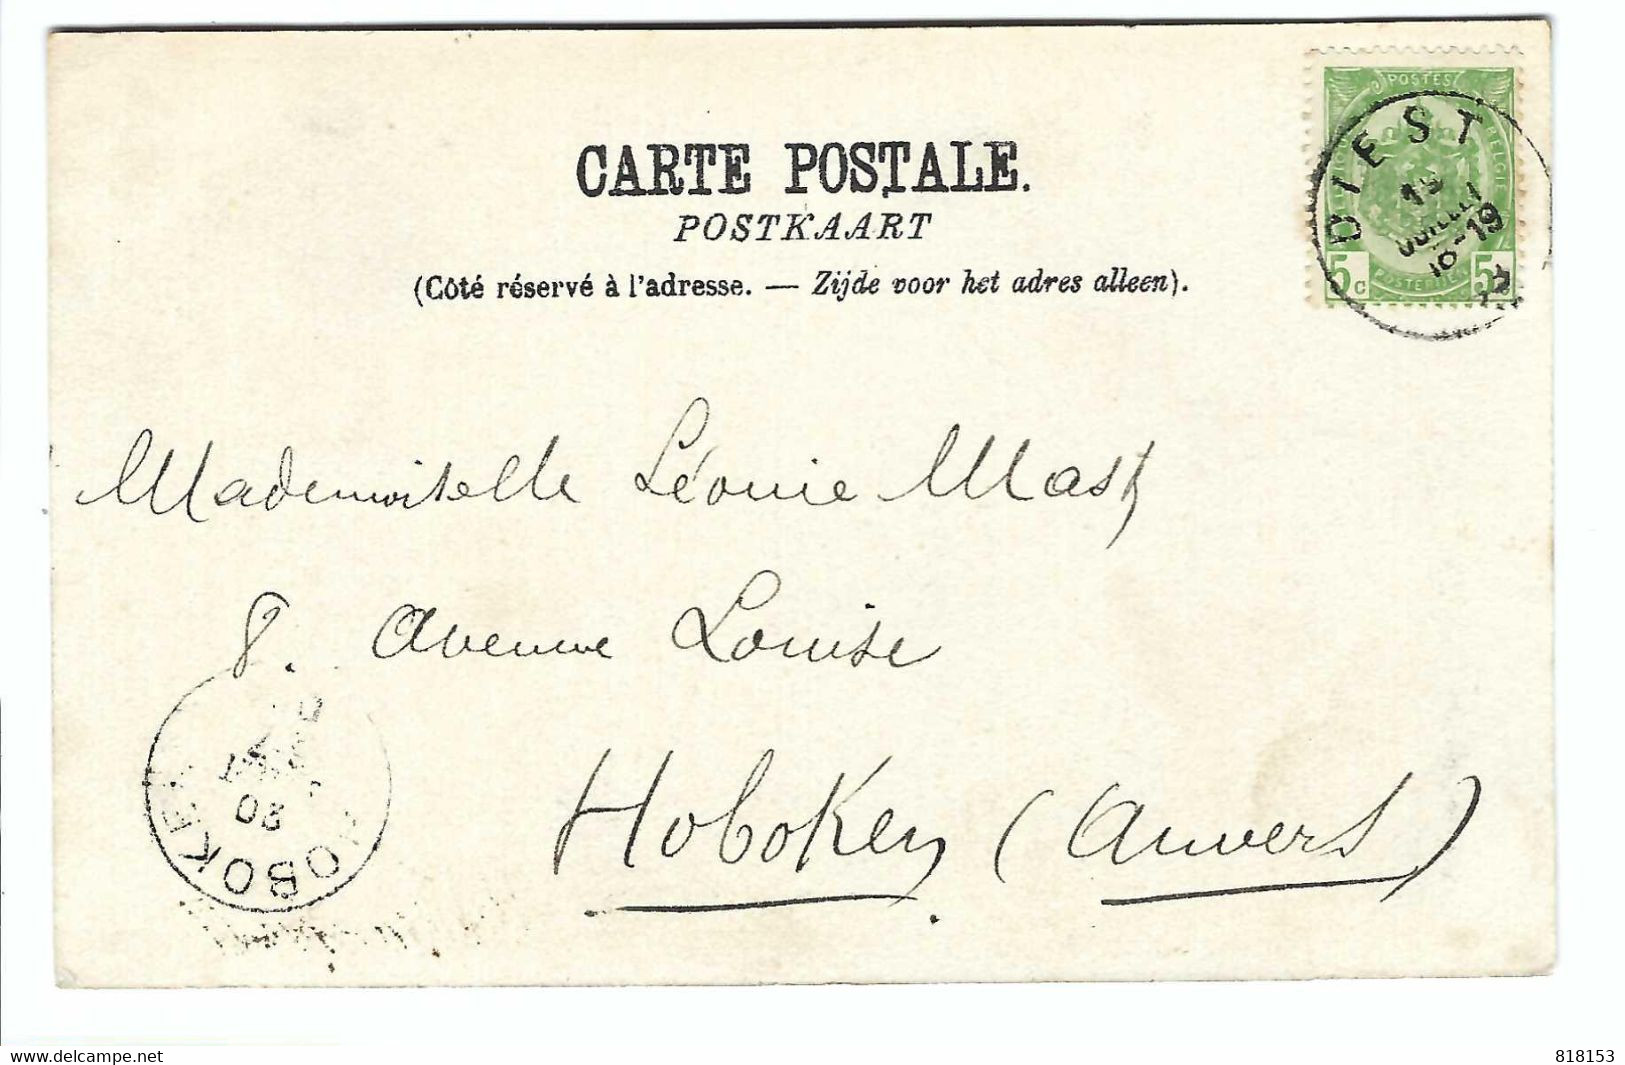 CARTE POSTALE.
POSTKAART
(Côté réservé à l'adresse. — Zijde voor het adres alleen).
POSTES
BELGIQUE BELGIE
5 c POSTERIJEN 5
DIEST
15
JUILLET
18-19
Mademoiselle Léonie Mast
8. Avenue Louise
Hoboken (Anvers)
HOBOKEN
delcampe.net
818153